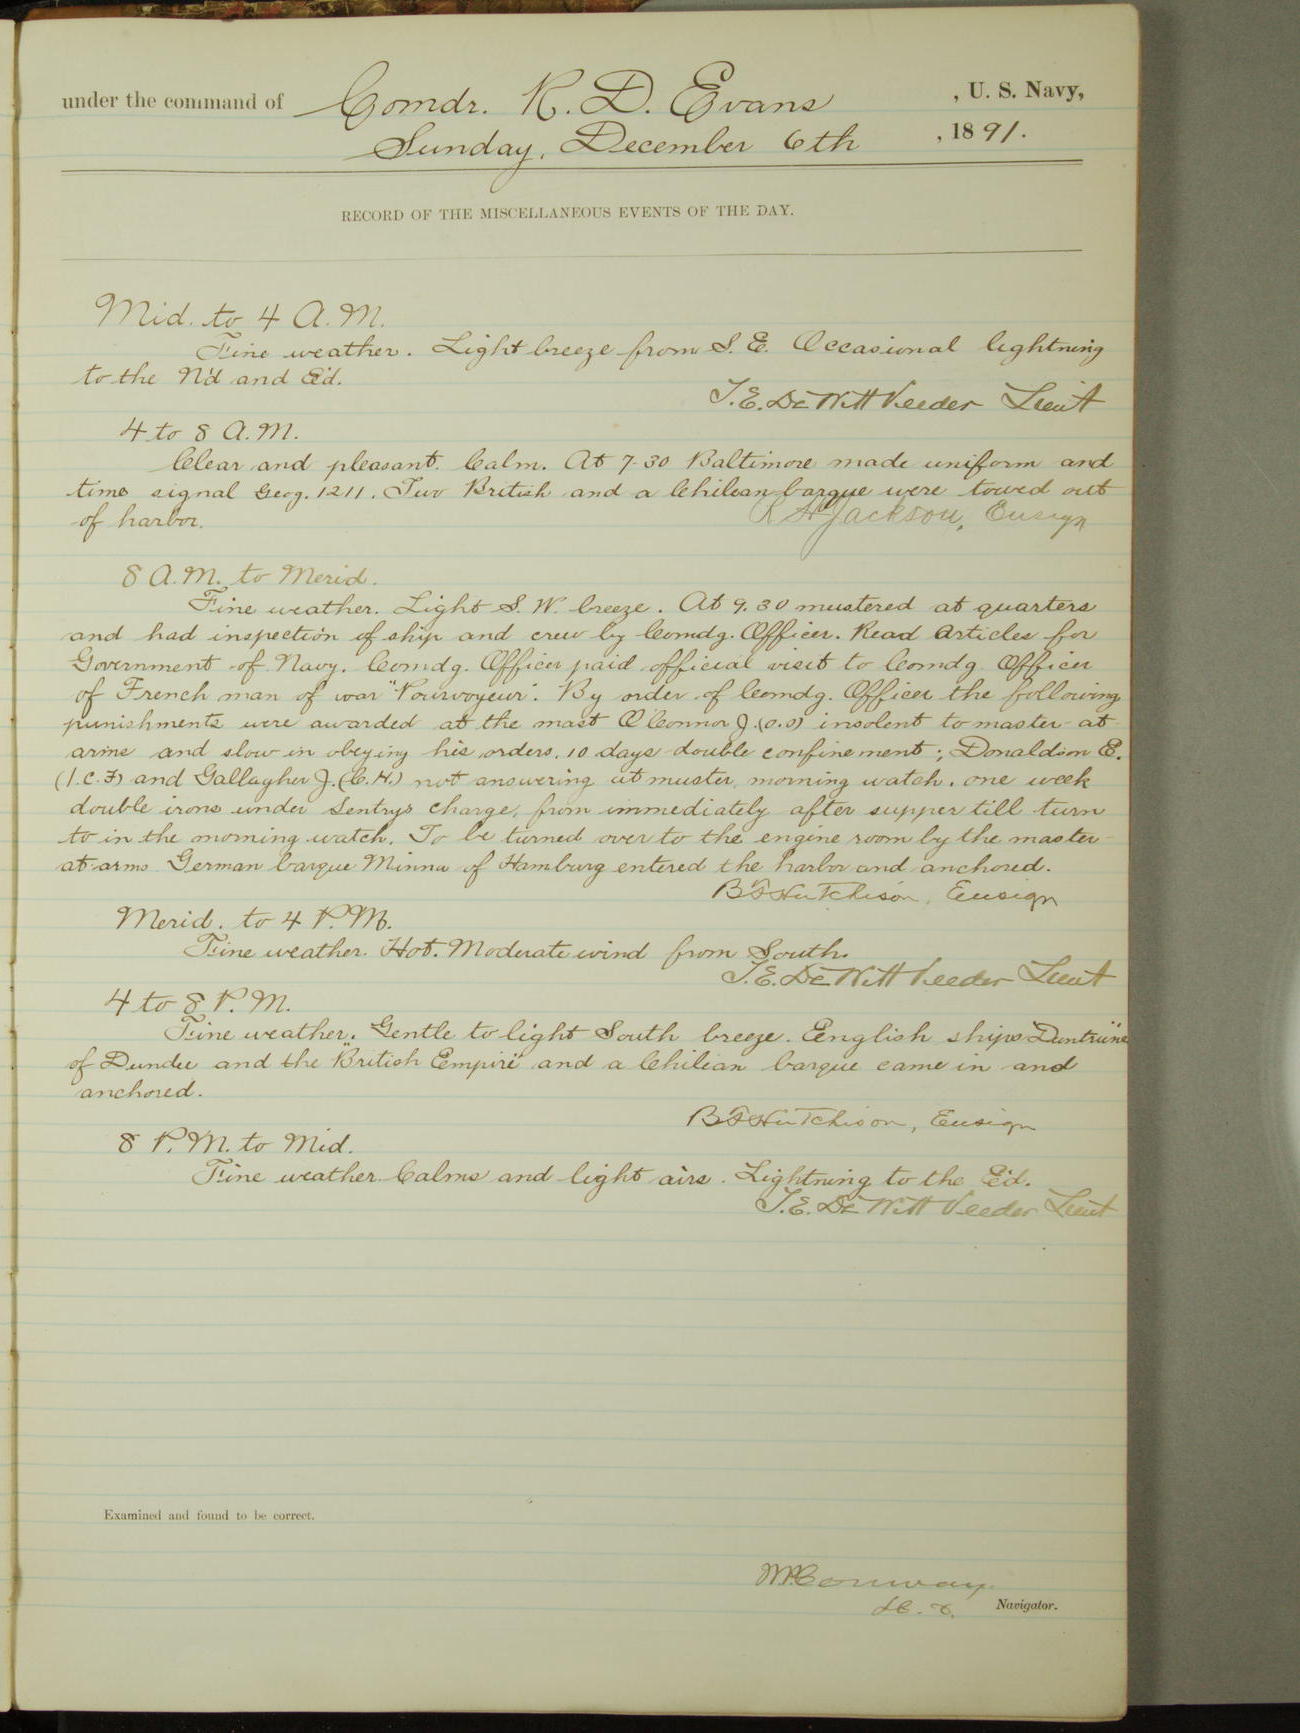 under the command of Comdr. R. D. Evans , U. S. Navy,
Sunday, December 6th , 1891.
RECORD OF THE MISCELLANEOUS EVENTS OF THE DAY.
Mid. to 4 A.M.
Fine weather. Light breeze from S. E. Occasional lightning
to the N'd and E'd.
T. E. DeWitt Veeder Lieut
4 to 8 A.M.
Clear and pleasant. Calm. At 7.30 Baltimore made uniform and
time signal Geog. 1211. Two British and a Chilean barque were towed out
of harbor.
R H Jackson, Ensign
8 A.M. to Merid.
Fine weather. Light S. W. breeze. At 9.30 mustered at quarters
and had inspection of ship and crew by Comdg. Officer. Read Articles for
Government of Navy. Comdg. Officer paid official visit to Comdg. Officer
of French man of war "Pourvoyeur". By order of Comdg. Officer the following
punishments were awarded at the mast O'Connor J. (O.S) insolent to master-at
arms and slow in obeying his orders, 10 days double confinement; Donaldson E.
(1.C.F) and Gallagher J. (C.H.) not answering at muster, morning watch, one week
double irons under Sentrys charge, from immediately after supper till turn
to in the morning watch. To be turned over to the engine room by the master-
at-arms. German barque Minna of Hamburg entered the harbor and anchored.
B F Hutchison, Ensign
Merid. to 4 P.M.
Fine weather. Hot. Moderate wind from South.
T. E. DeWitt Veeder Lieut
4 to 8 P.M.
Fine weather. Gentle to light South breeze. English ships "Duntrune"
of Dundee and the "British Empire" and a Chilean barque came in and
anchored.
B F Hutchison, Ensign
8 P.M. to Mid.
Fine weather. Calms and light airs. Lightning to the E'd.
T. E. DeWitt Veeder Lieut
Examined and found to be correct.
W P Conway
Navigator.